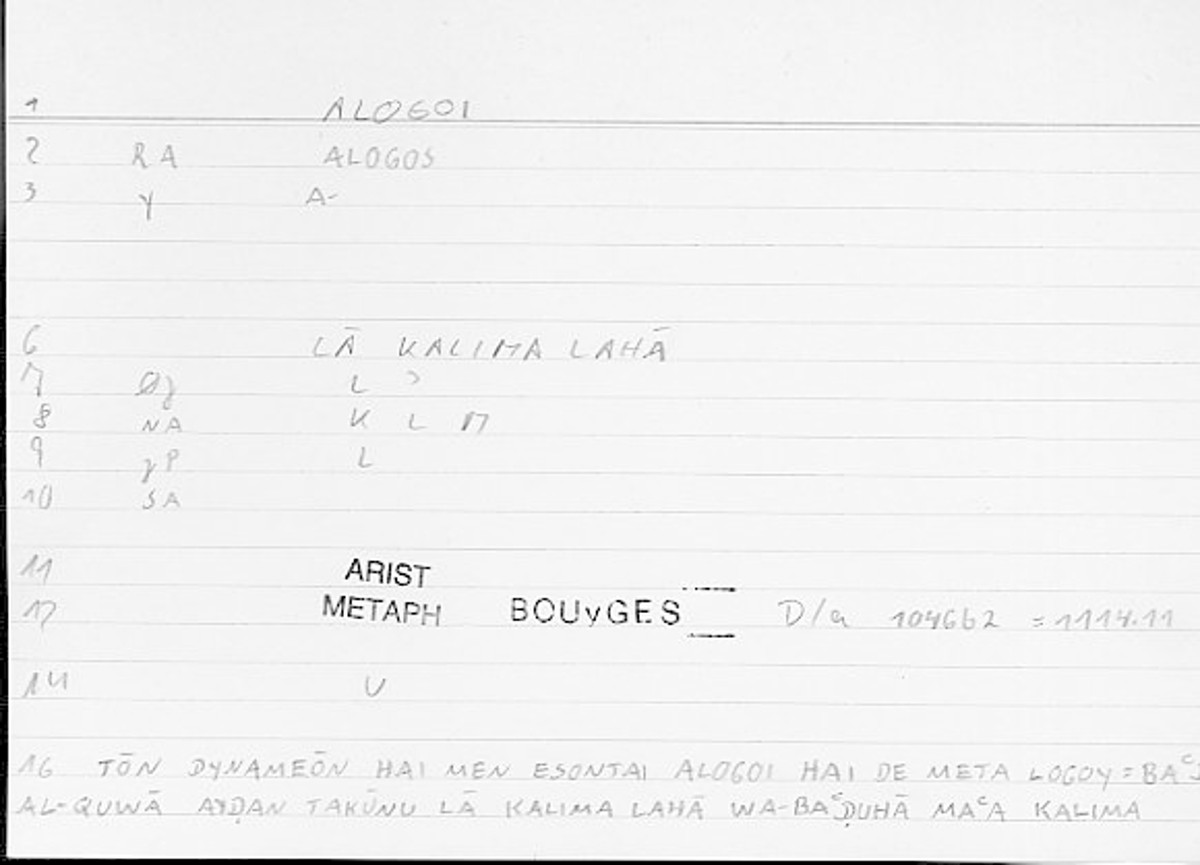 1 ALOGOI
2 RA ALOGOS
3 Y A-
6 LĀ KALIMA LAHĀ
7 L ʾ
8 NA K L M
9 γP L
10 SA
11 ARIST
12 METAPH BOUyGES D/a 1046b2 = 1114.11
14 U
16 TŌN DYNAMEŌN HAI MEN ESONTAI ALOGOI HAI DE META LOGOY = BAʿḌ
AL-QUWĀ AYḌAN TAKŪNU LĀ KALIMA LAHĀ WA-BAʿḌUHĀ MAʿA KALIMA